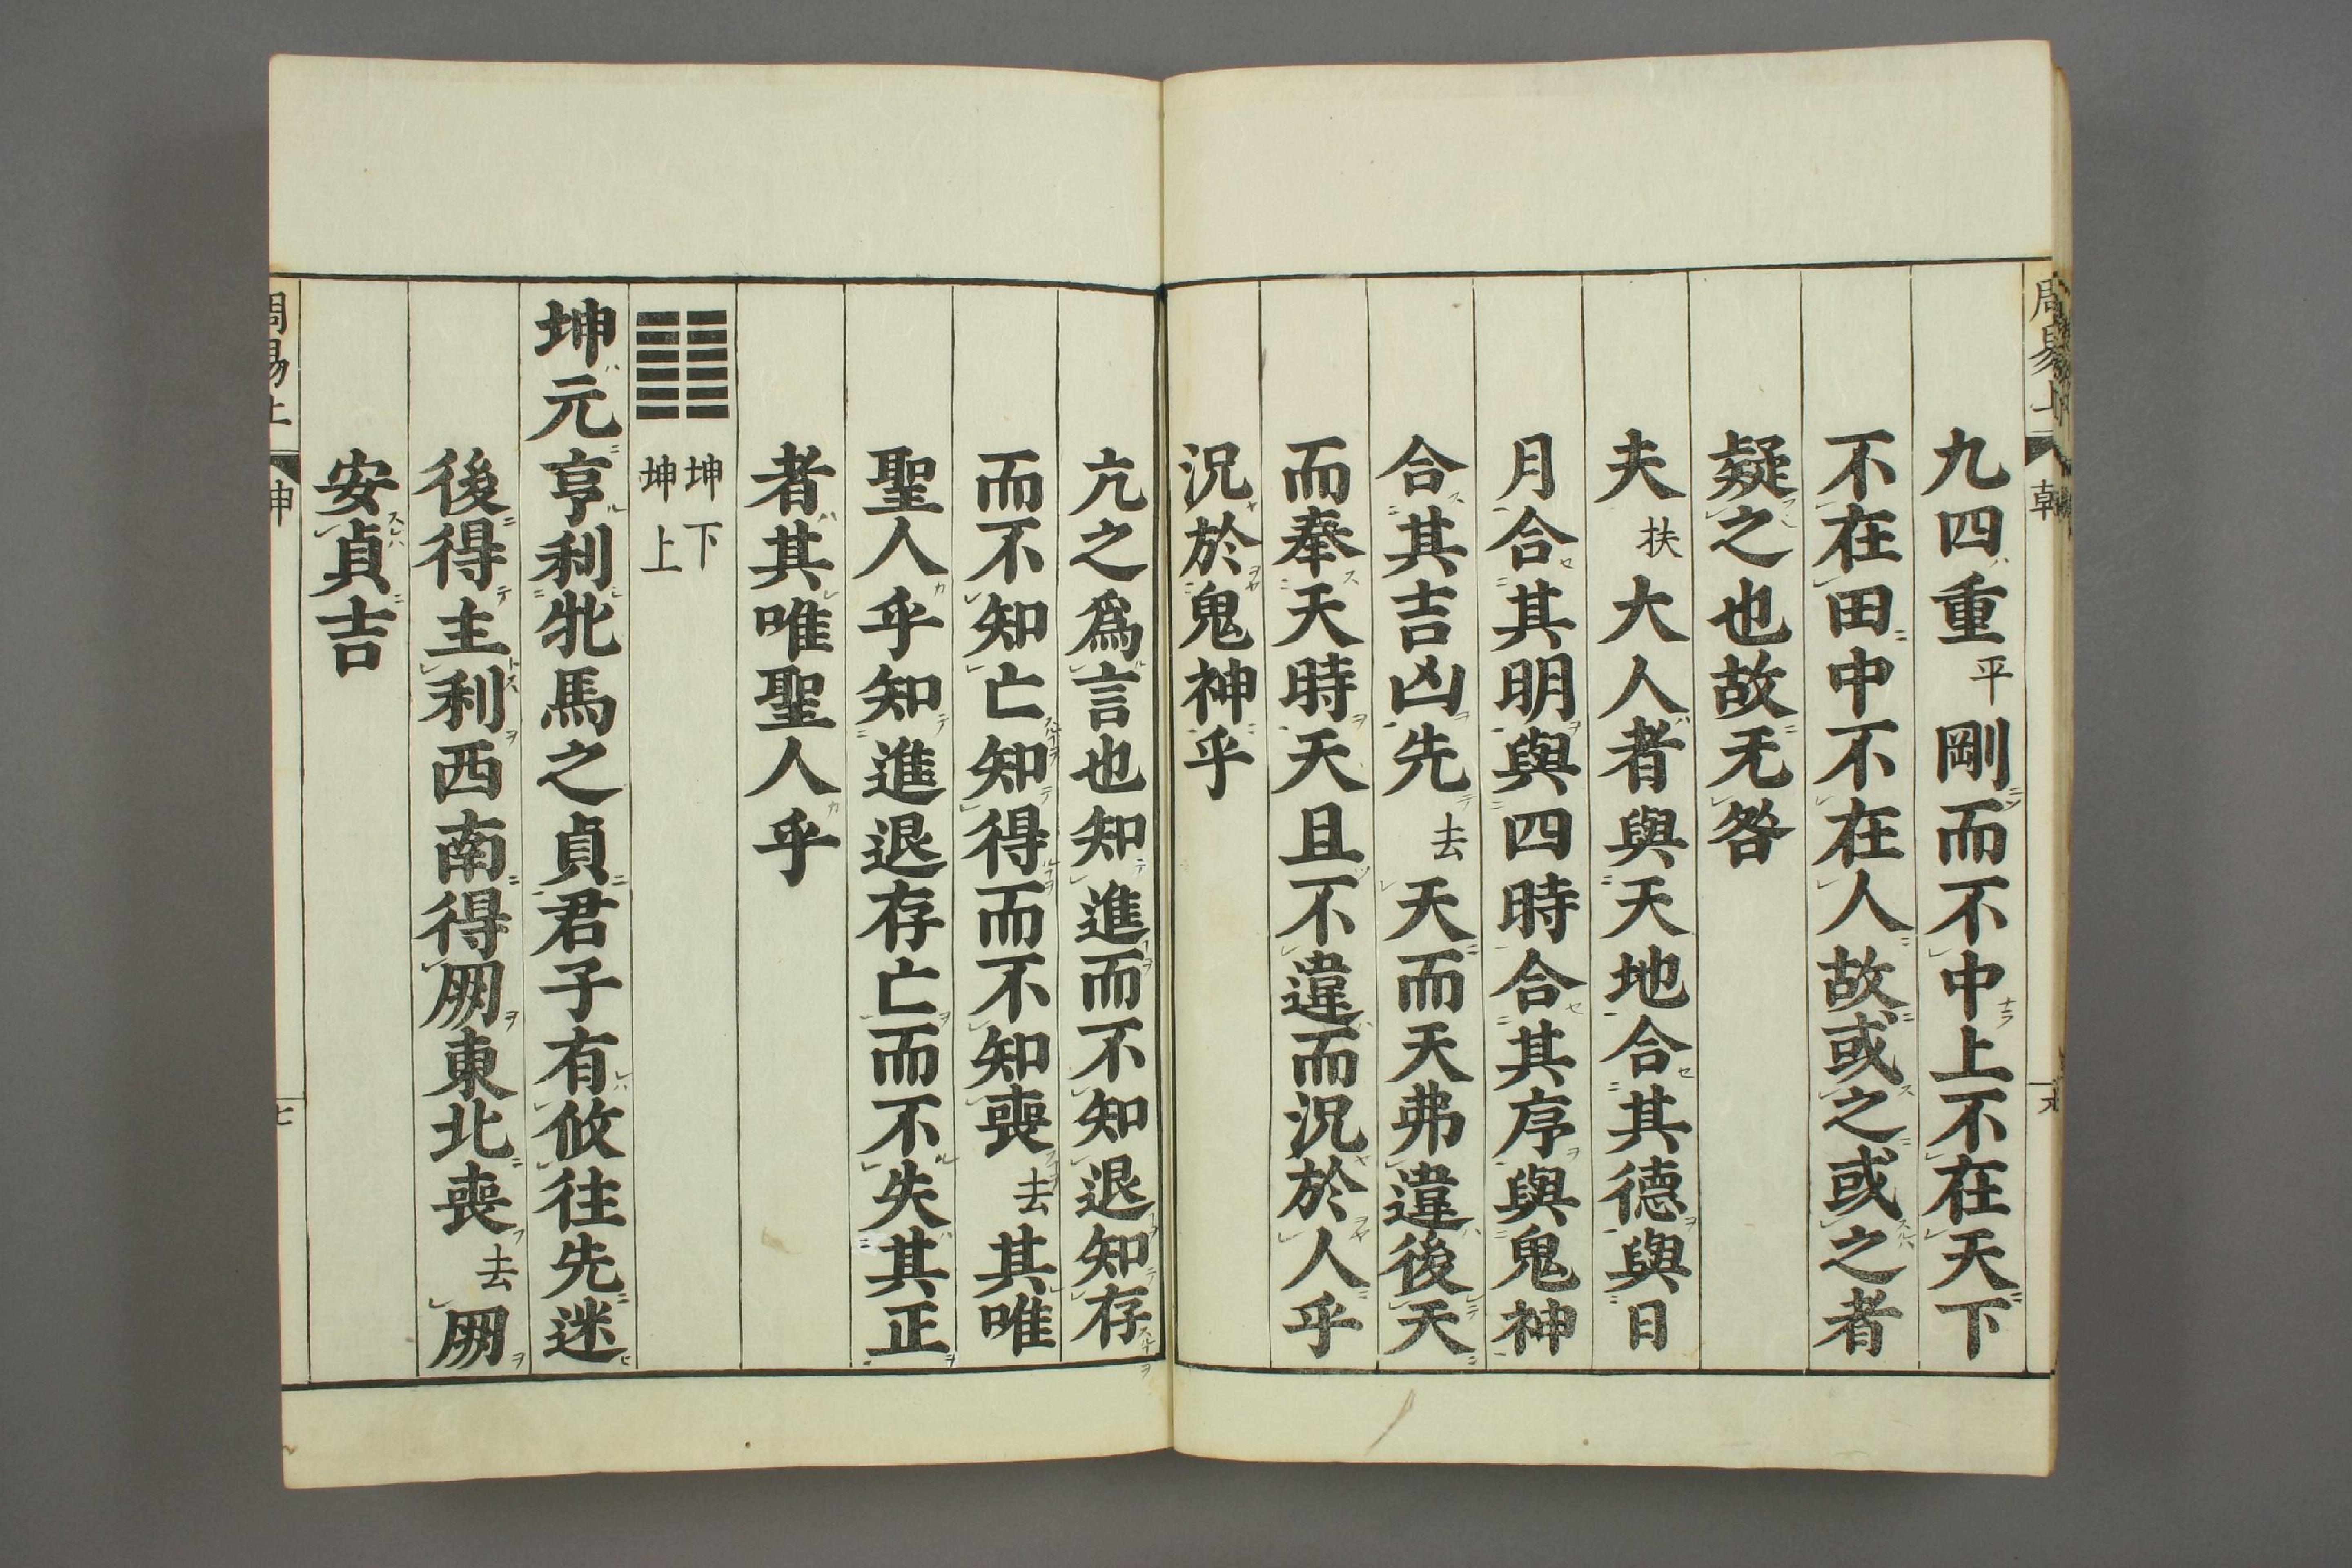 九四重平剛而不中上不在天下
不在田中不在人故或之或之者
疑之也故无咎
夫扶大人者與天地合其德與日
月合其明與四時合其序與鬼神
合其吉凶先去天而天弗違後天
而奉天時天且不違而況於人乎
況於鬼神乎
亢之爲言也知進而不知退知存
而不知亡知得而不知喪去其唯
聖人乎知進退存亡而不失其正
者其唯聖人乎
坤下
坤上
坤元亨利牝馬之貞君子有攸往先迷
後得主利西南得朋東北喪去朋
安貞吉
周易上